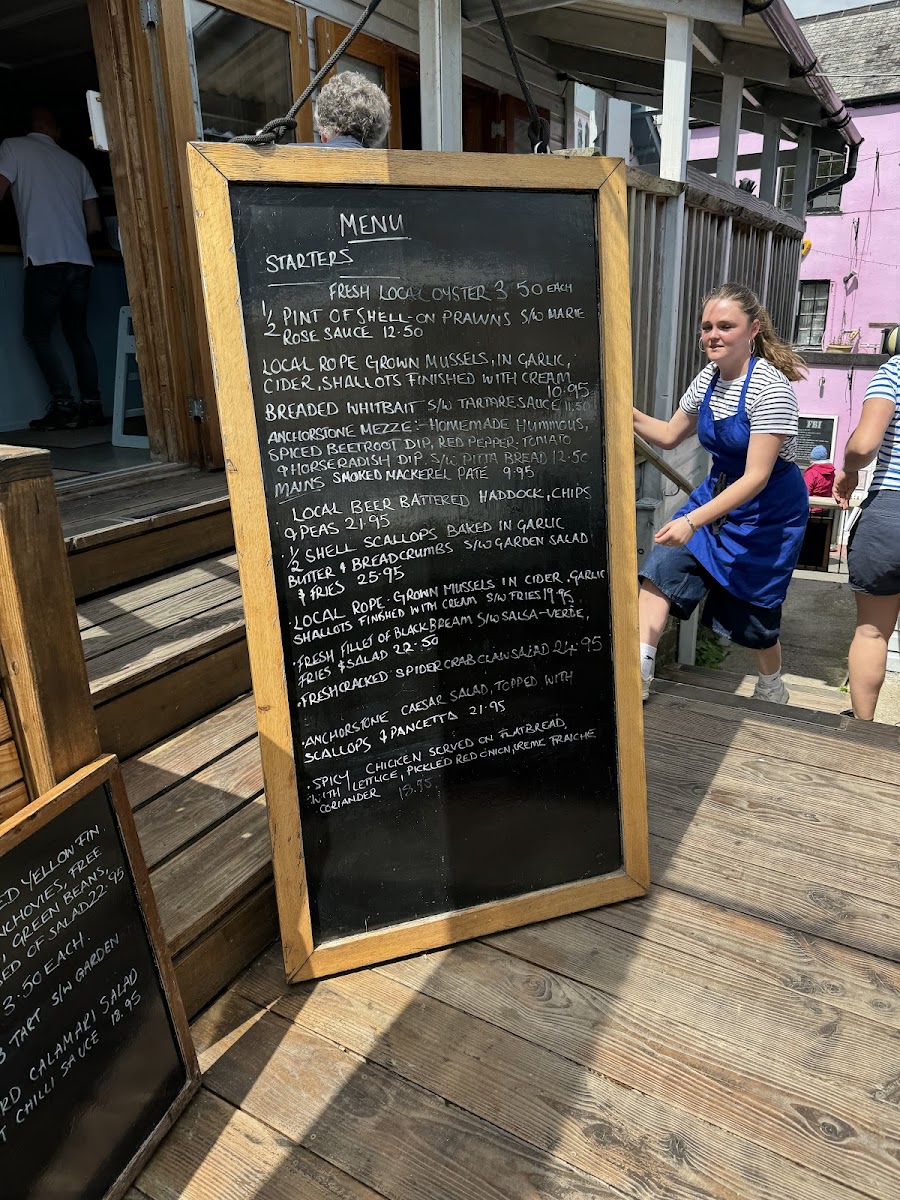 MENU
STARTERS
FRESH LOCAL OYSTER 3 50 EACH
1/2 PINT OF SHELL-ON PRAWNS S/W MARIE
ROSE SAUCE 12.50
LOCAL ROPE GROWN MUSSELS, IN GARLIC,
CIDER, SHALLOTS FINISHED WITH CREAM
10.95
BREADED WHITBAIT S/W TARTARE SAUCE 11.50
ANCHORSTONE MEZZE:- HOMEMADE HUMMOUS,
SPICED BEETROOT DIP, RED PEPPER-TOMATO
& HORSERADISH DIP S/W PITTA BREAD 12.50
MAINS SMOKED MACKEREL PATE 9.95
LOCAL BEER BATTERED HADDOCK, CHIPS
& PEAS 21.95
1/2 SHELL SCALLOPS BAKED IN GARLIC
BUTTER & BREADCRUMBS S/W GARDEN SALAD
& FRIES 25.95
· LOCAL ROPE-GROWN MUSSELS IN CIDER, GARLIC
SHALLOTS FINISHED WITH CREAM S/W FRIES 19.95
· FRESH FILLET OF BLACK BREAM S/W SALSA-VERDE,
FRIES & SALAD 22.50
· FRESH CRACKED SPIDER CRAB CLAW SALAD 24.95
· ANCHORSTONE CAESAR SALAD, TOPPED WITH
SCALLOPS & PANCETTA 21.95
· SPICY CHICKEN SERVED ON FLATBREAD,
WITH LETTUCE, PICKLED RED ONION, CREME FRAICHE
CORIANDER
ED YELLOW FIN
NCHOVIES, FREE
GREEN BEANS,
BED OF SALAD 22.95
3.50 EACH.
B TART S/W GARDEN
RD CALAMARI SALAD
T CHILLI SAUCE 18.95
FBI